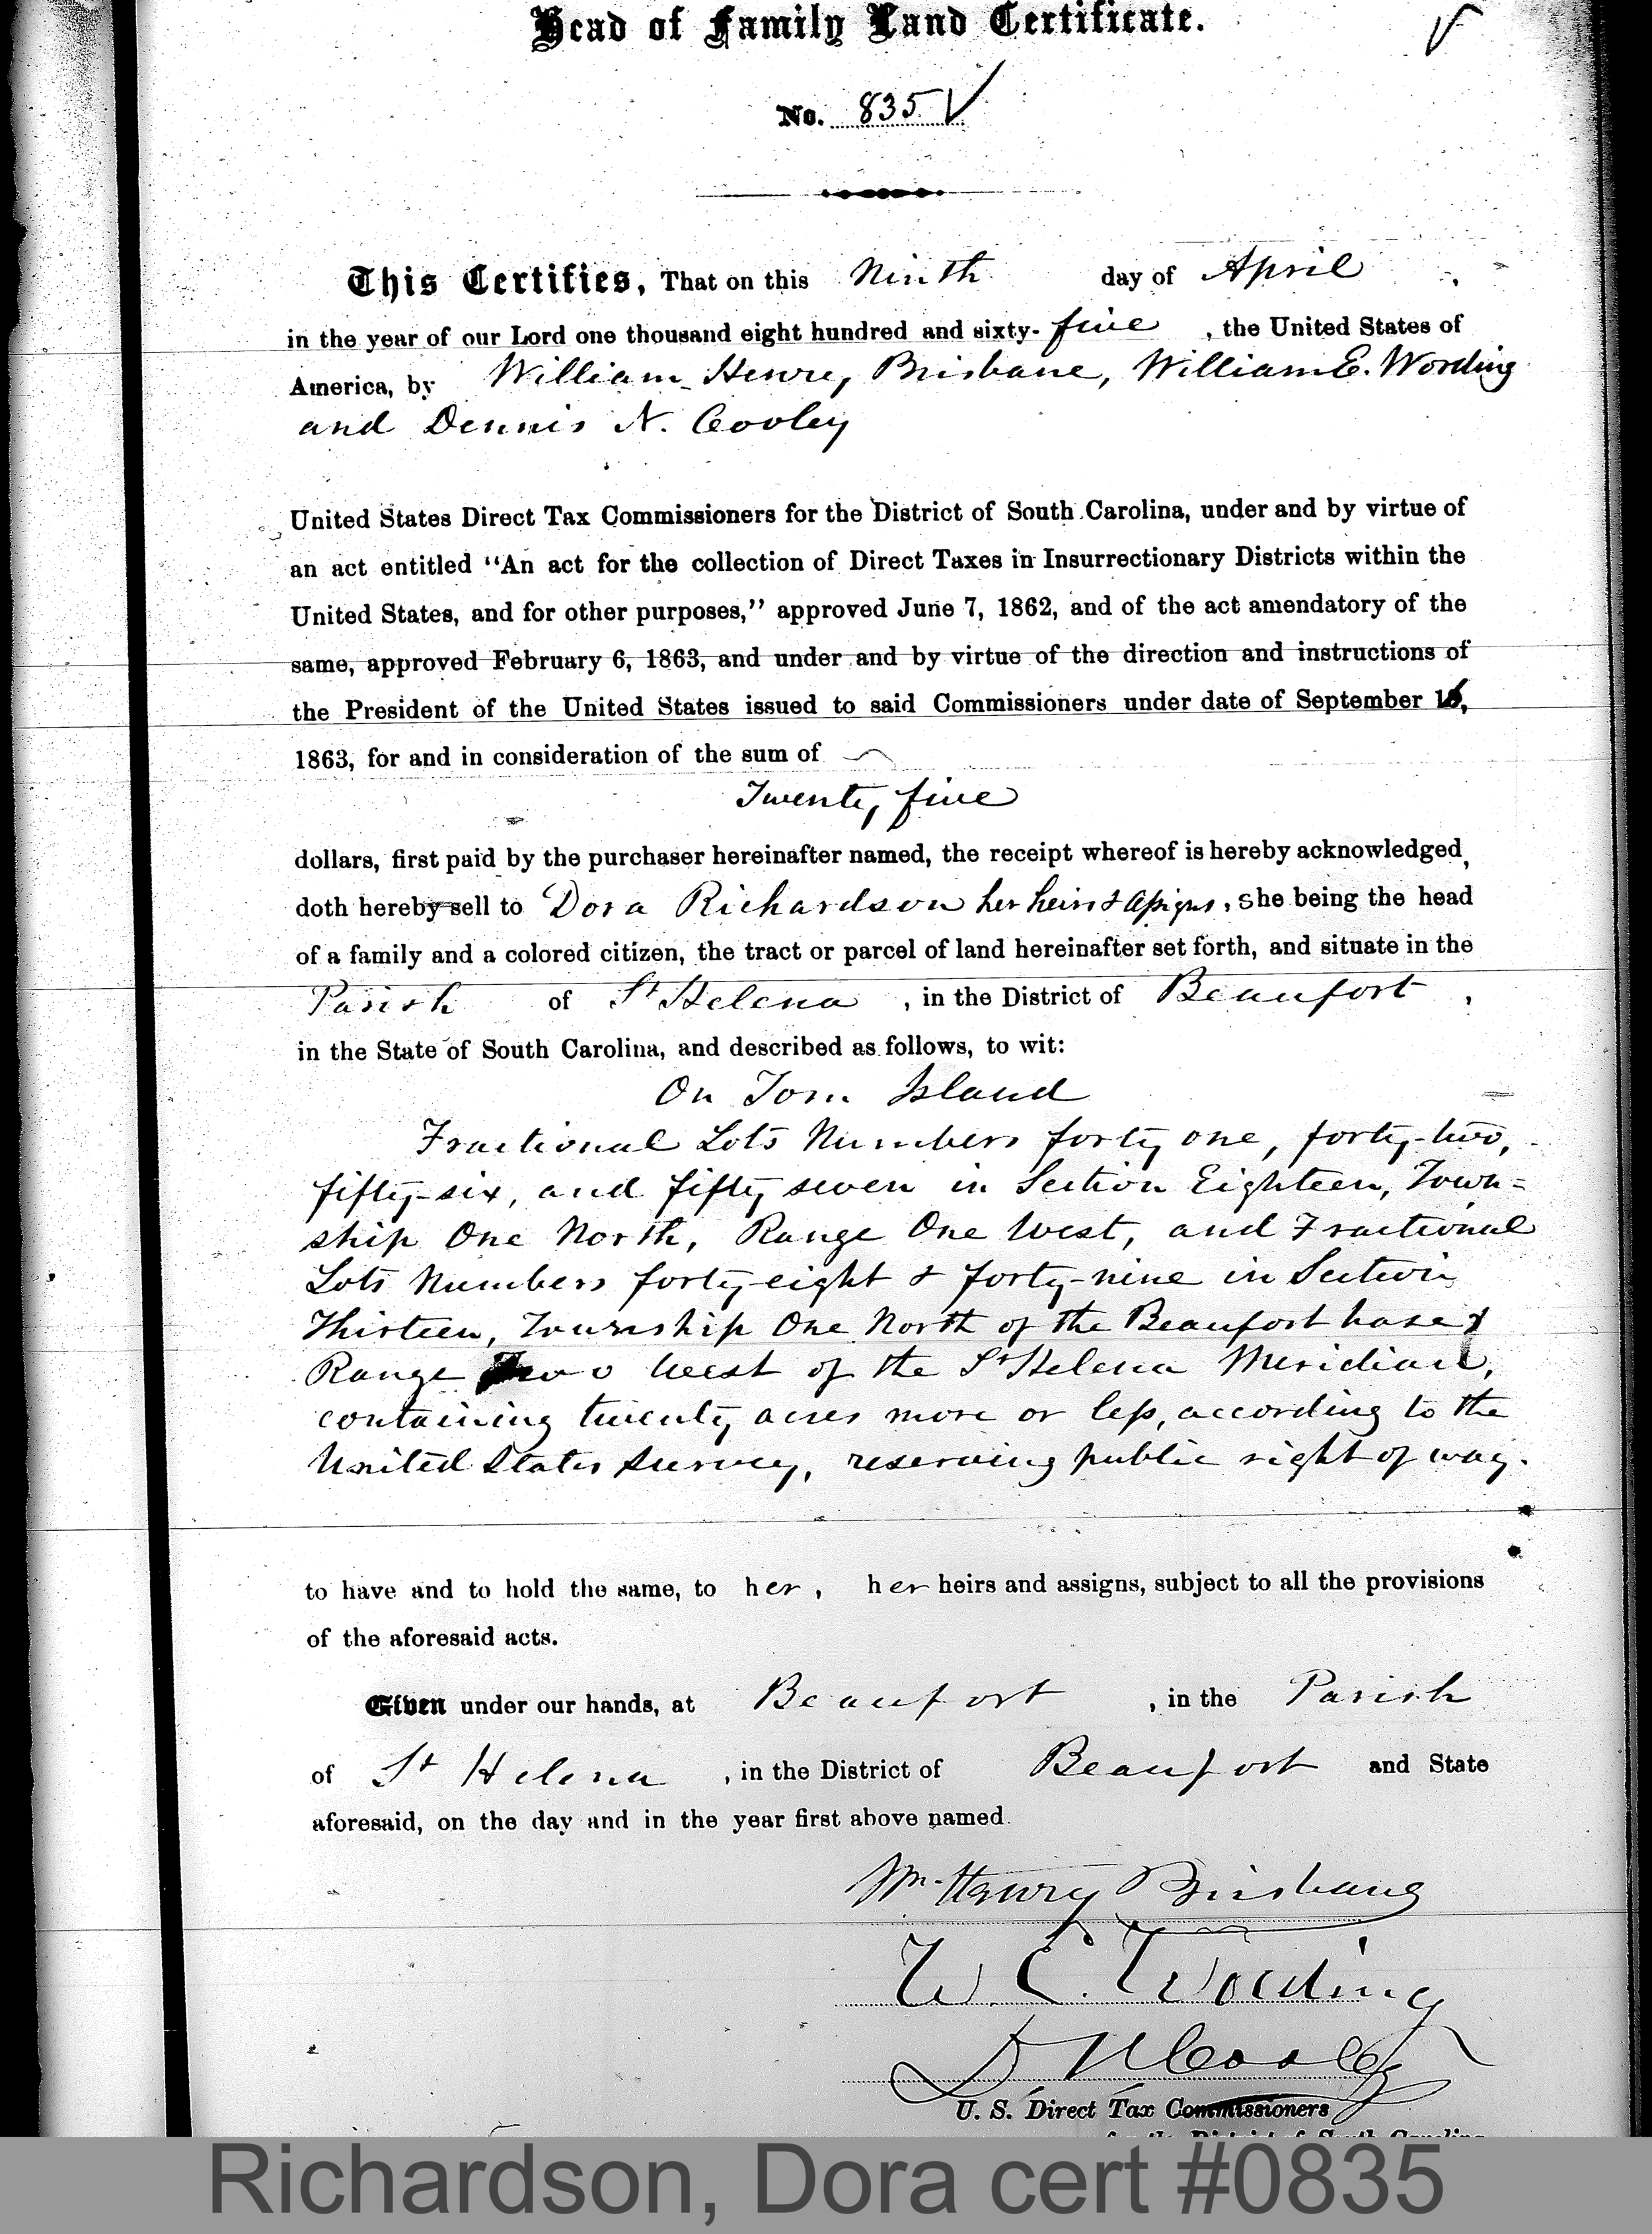 Head of Family Land Certificate.
No. 835
This Certifies, That on this Ninth day of April,
in the year of our Lord one thousand eight hundred and sixty-five, the United States of
America, by William Henry Brisbane, William E. Wording
and Dennis N. Cooley
United States Direct Tax Commissioners for the District of South Carolina, under and by virtue of
an act entitled "An act for the collection of Direct Taxes in Insurrectionary Districts within the
United States, and for other purposes," approved June 7, 1862, and of the act amendatory of the
same, approved February 6, 1863, and under and by virtue of the direction and instructions of
the President of the United States issued to said Commissioners under date of September 16,
1863, for and in consideration of the sum of
Twenty five
dollars, first paid by the purchaser hereinafter named, the receipt whereof is hereby acknowledged,
doth hereby sell to Dora Richardson her heirs & assigns, she being the head
of a family and a colored citizen, the tract or parcel of land hereinafter set forth, and situate in the
Parish of St Helena, in the District of Beaufort,
in the State of South Carolina, and described as follows, to wit:
On Tom Island
Fractional Lots Numbers forty one, forty-two,
fifty-six, and fifty seven in Section Eighteen, Town=
ship One North, Range One West, and Fractional
Lots Numbers forty-eight & forty-nine in Section
Thirteen, Township One North of the Beaufort base &
Range Two West of the St Helena Meridian,
containing twenty acres more or less, according to the
United States Survey, reserving public right of way.
to have and to hold the same, to her, her heirs and assigns, subject to all the provisions
of the aforesaid acts.
Given under our hands, at Beaufort, in the Parish
of St Helena, in the District of Beaufort and State
aforesaid, on the day and in the year first above named.
Wm. Henry Brisbane
W. E. Wording
D N Cooley
U. S. Direct Tax Commissioners
for the District of South Carolina
Richardson, Dora cert #0835